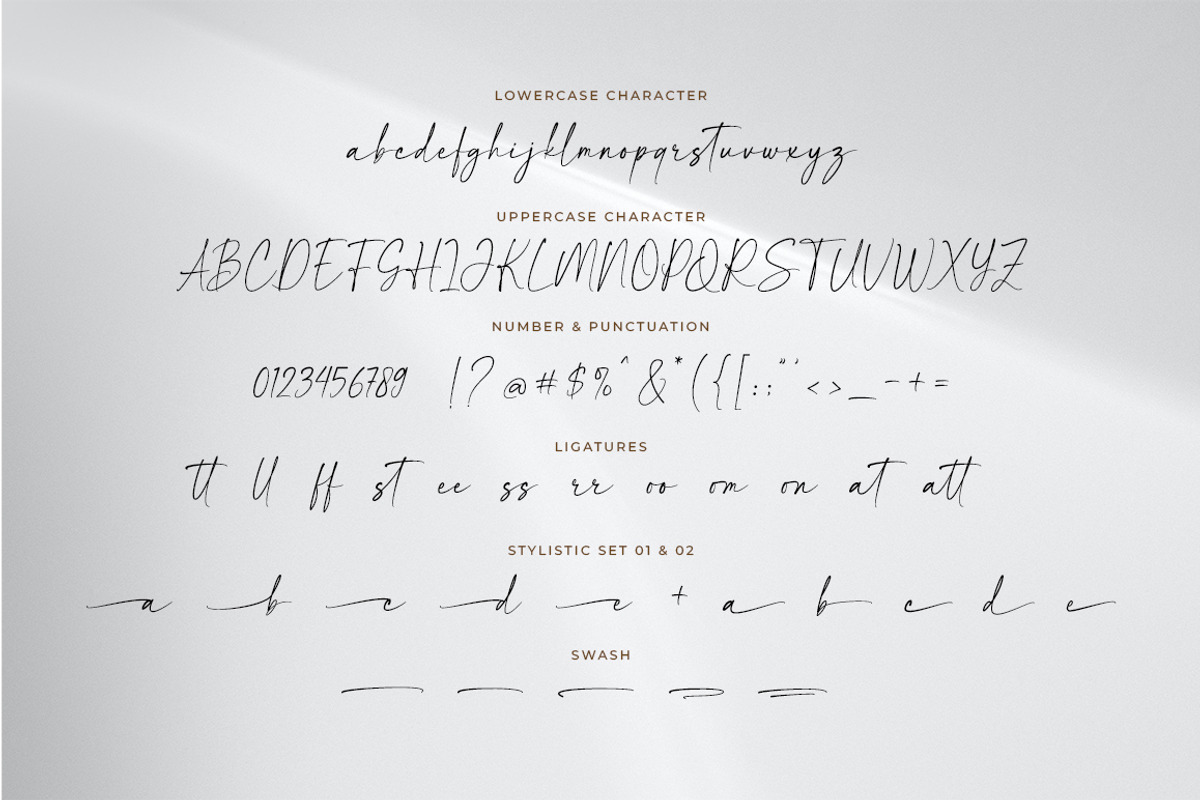 LOWERCASE CHARACTER
abcdefghijklmnopqrstuvwxyz
UPPERCASE CHARACTER
ABCDEFGHIJKLMNOPQRSTUVWXYZ
NUMBER & PUNCTUATION
0123456789 !? @#$%^&*({[:;"'<>_-+=
LIGATURES
tt ll ff st ee ss rr oo om on at att
STYLISTIC SET 01 & 02
a b c d e + a b c d e
SWASH